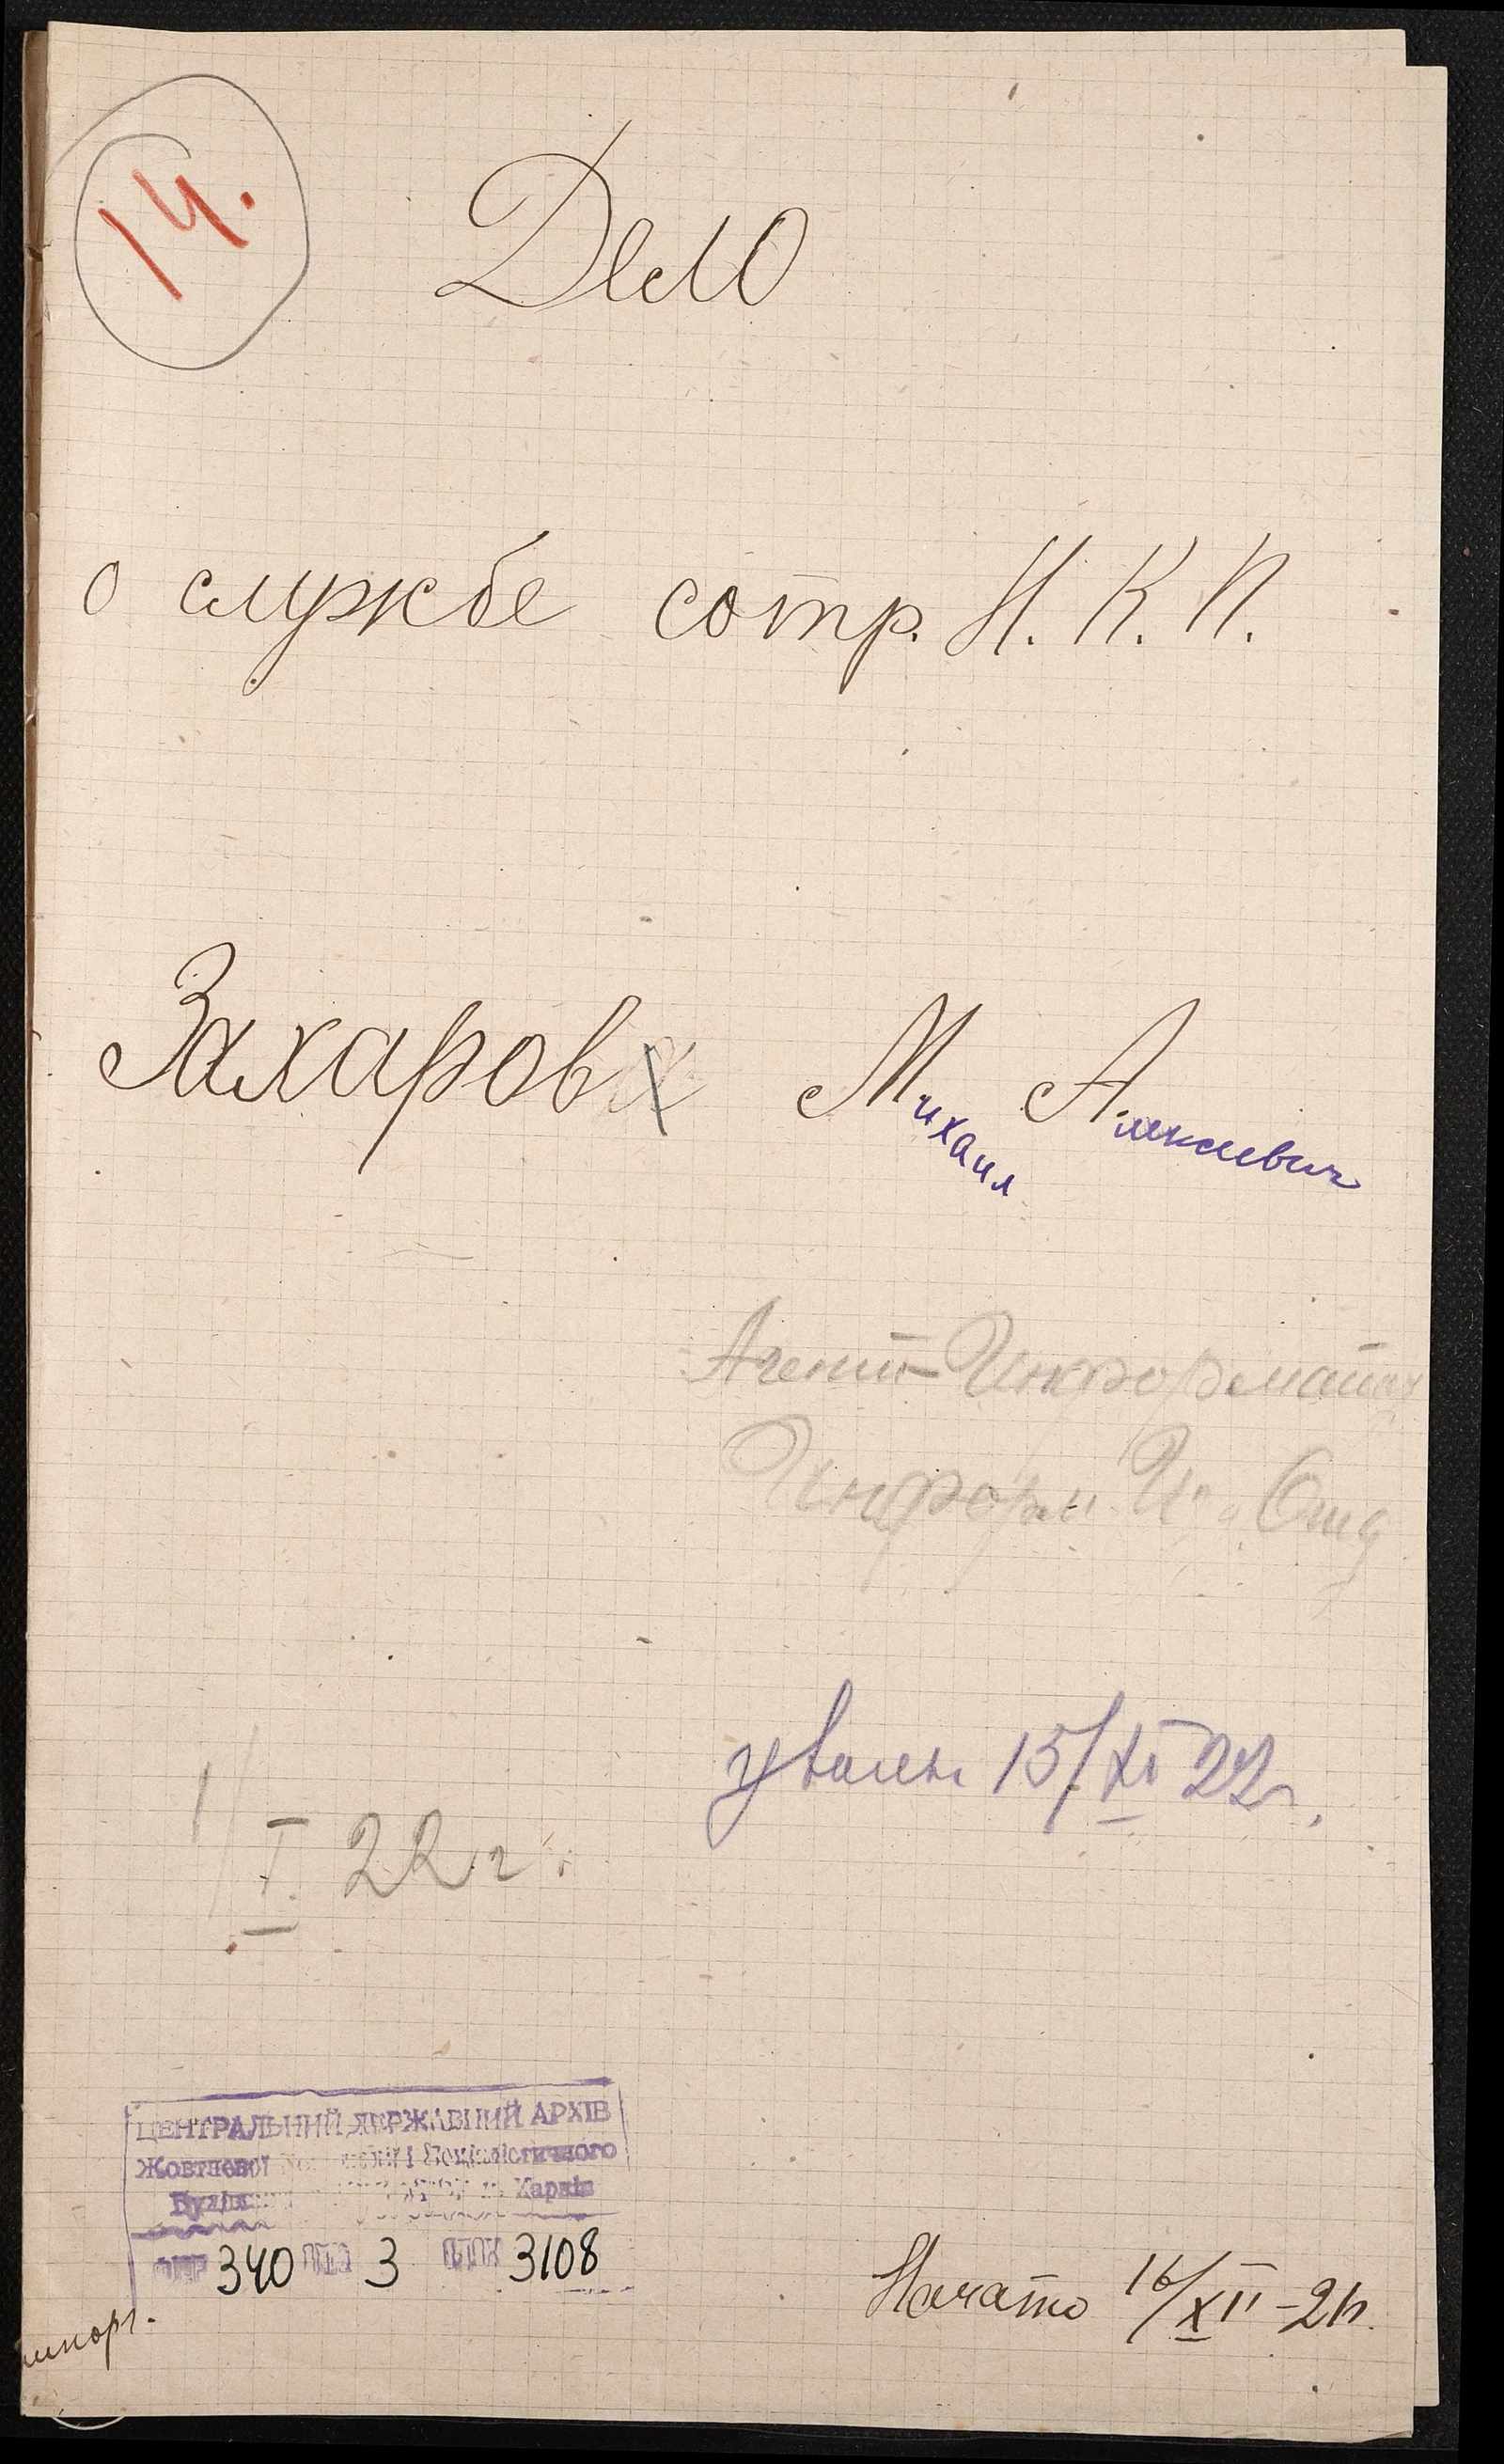 14.
Дело
о службе сотр. Н. К. П.
Захаров М. А.
ихаил лексеевич
Агент-Информатор
Информ. Отд
уволен 15/XI 22г.
1/I. 22 г.
ЦЕНТРАЛЬНИЙ ДЕРЖАВНИЙ АРХІВ
Жовтневої і Соціалістичного
Харків
340 3 3108
Начато 16/XII-21г.